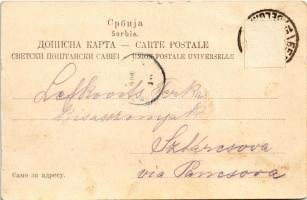 Србија
Serbie.
ДОПИСНА КАРТА — CARTE POSTALE
СВЕТСКИ ПОШТАНСКИ САВЕЗ — UNION POSTALE UNIVERSELLE
Lefkovits Terka
kisasszonynak
Sztárcsova
via Pancsova
Само за адресу.